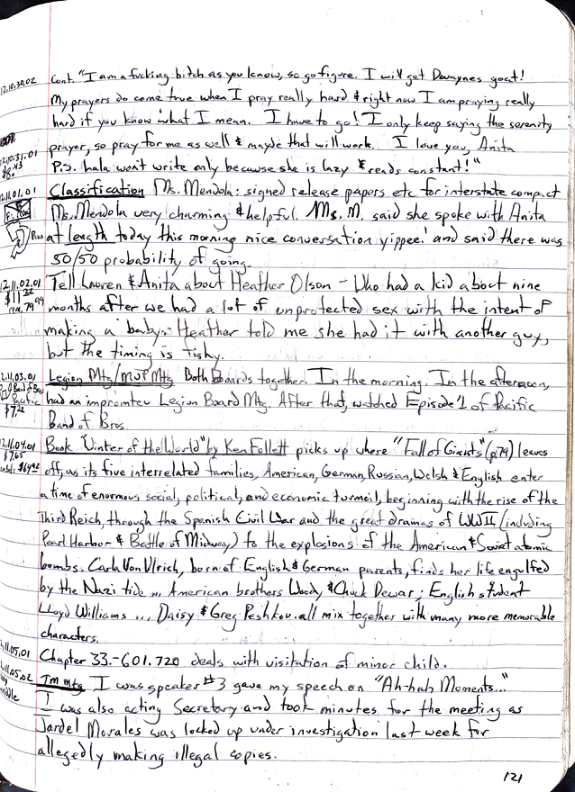 12.10.30.02 Cont. "I am a fucking bitch as you know, so go figure. I will get Dewaynes goat!
My prayers do come true when I pray really hard & right now I am praying really
hard if you know what I mean. I have to go! I only keep saying the serenity
prayer, so pray for me as well & maybe that will work. I love you, Anita
12.10.31.01 P.S. hala won't write only because she is lazy & reads constant!"
12.11.01.01 Classification Ms. Mendola: signed release papers etc for interstate compact
Ms. Mendola very charming & helpful. Ms. M. said she spoke with Anita
at length today this morning nice conversation yippee! and said there was
50/50 probability of going.
12.11.02.01 Tell Lauren & Anita about Heather Olson - Who had a kid about nine
months after we had a lot of unprotected sex with the intent of
making a baby. Heather told me she had it with another guy,
but the timing is fishy.
12.11.03.01 Legion Mtg/MVP Mtg Both boards together. In the morning. In the afternoon,
had an impromteu Legion Board Mtg. After that, watched Episode 1 of Pacific
Band of Bros.
12.11.04.01 Book "Winter of the World" by Ken Follett picks up where "Fall of Giants" (p79) leaves
off, as its five interrelated families, American, German, Russian, Welsh & English enter
a time of enormous social, political, and economic turmoil, beginning with the rise of the
Third Reich, through the Spanish Civil War and the great dramas of WWII (including
Pearl Harbor & Battle of Midway) to the explosions of the American & Soviet atomic
bombs. Carla Von Ulrich, born of English & German parents, finds her life engulfed
by the Nazi tide ... American brothers Woody & Chuck Dewar; English student
Lloyd Williams ... Daisy & Greg Peshkov. all mix together with many more memorable
characters.
12.11.05.01 Chapter 33.-601.720 deals with visitation of minor child.
12.11.05.02 Tm mtg I was speaker #3 gave my speech on "Ah-hah Moments..."
I was also acting Secretary and took minutes for the meeting as
Jardel Morales was locked up under investigation last week for
allegedly making illegal copies.
121